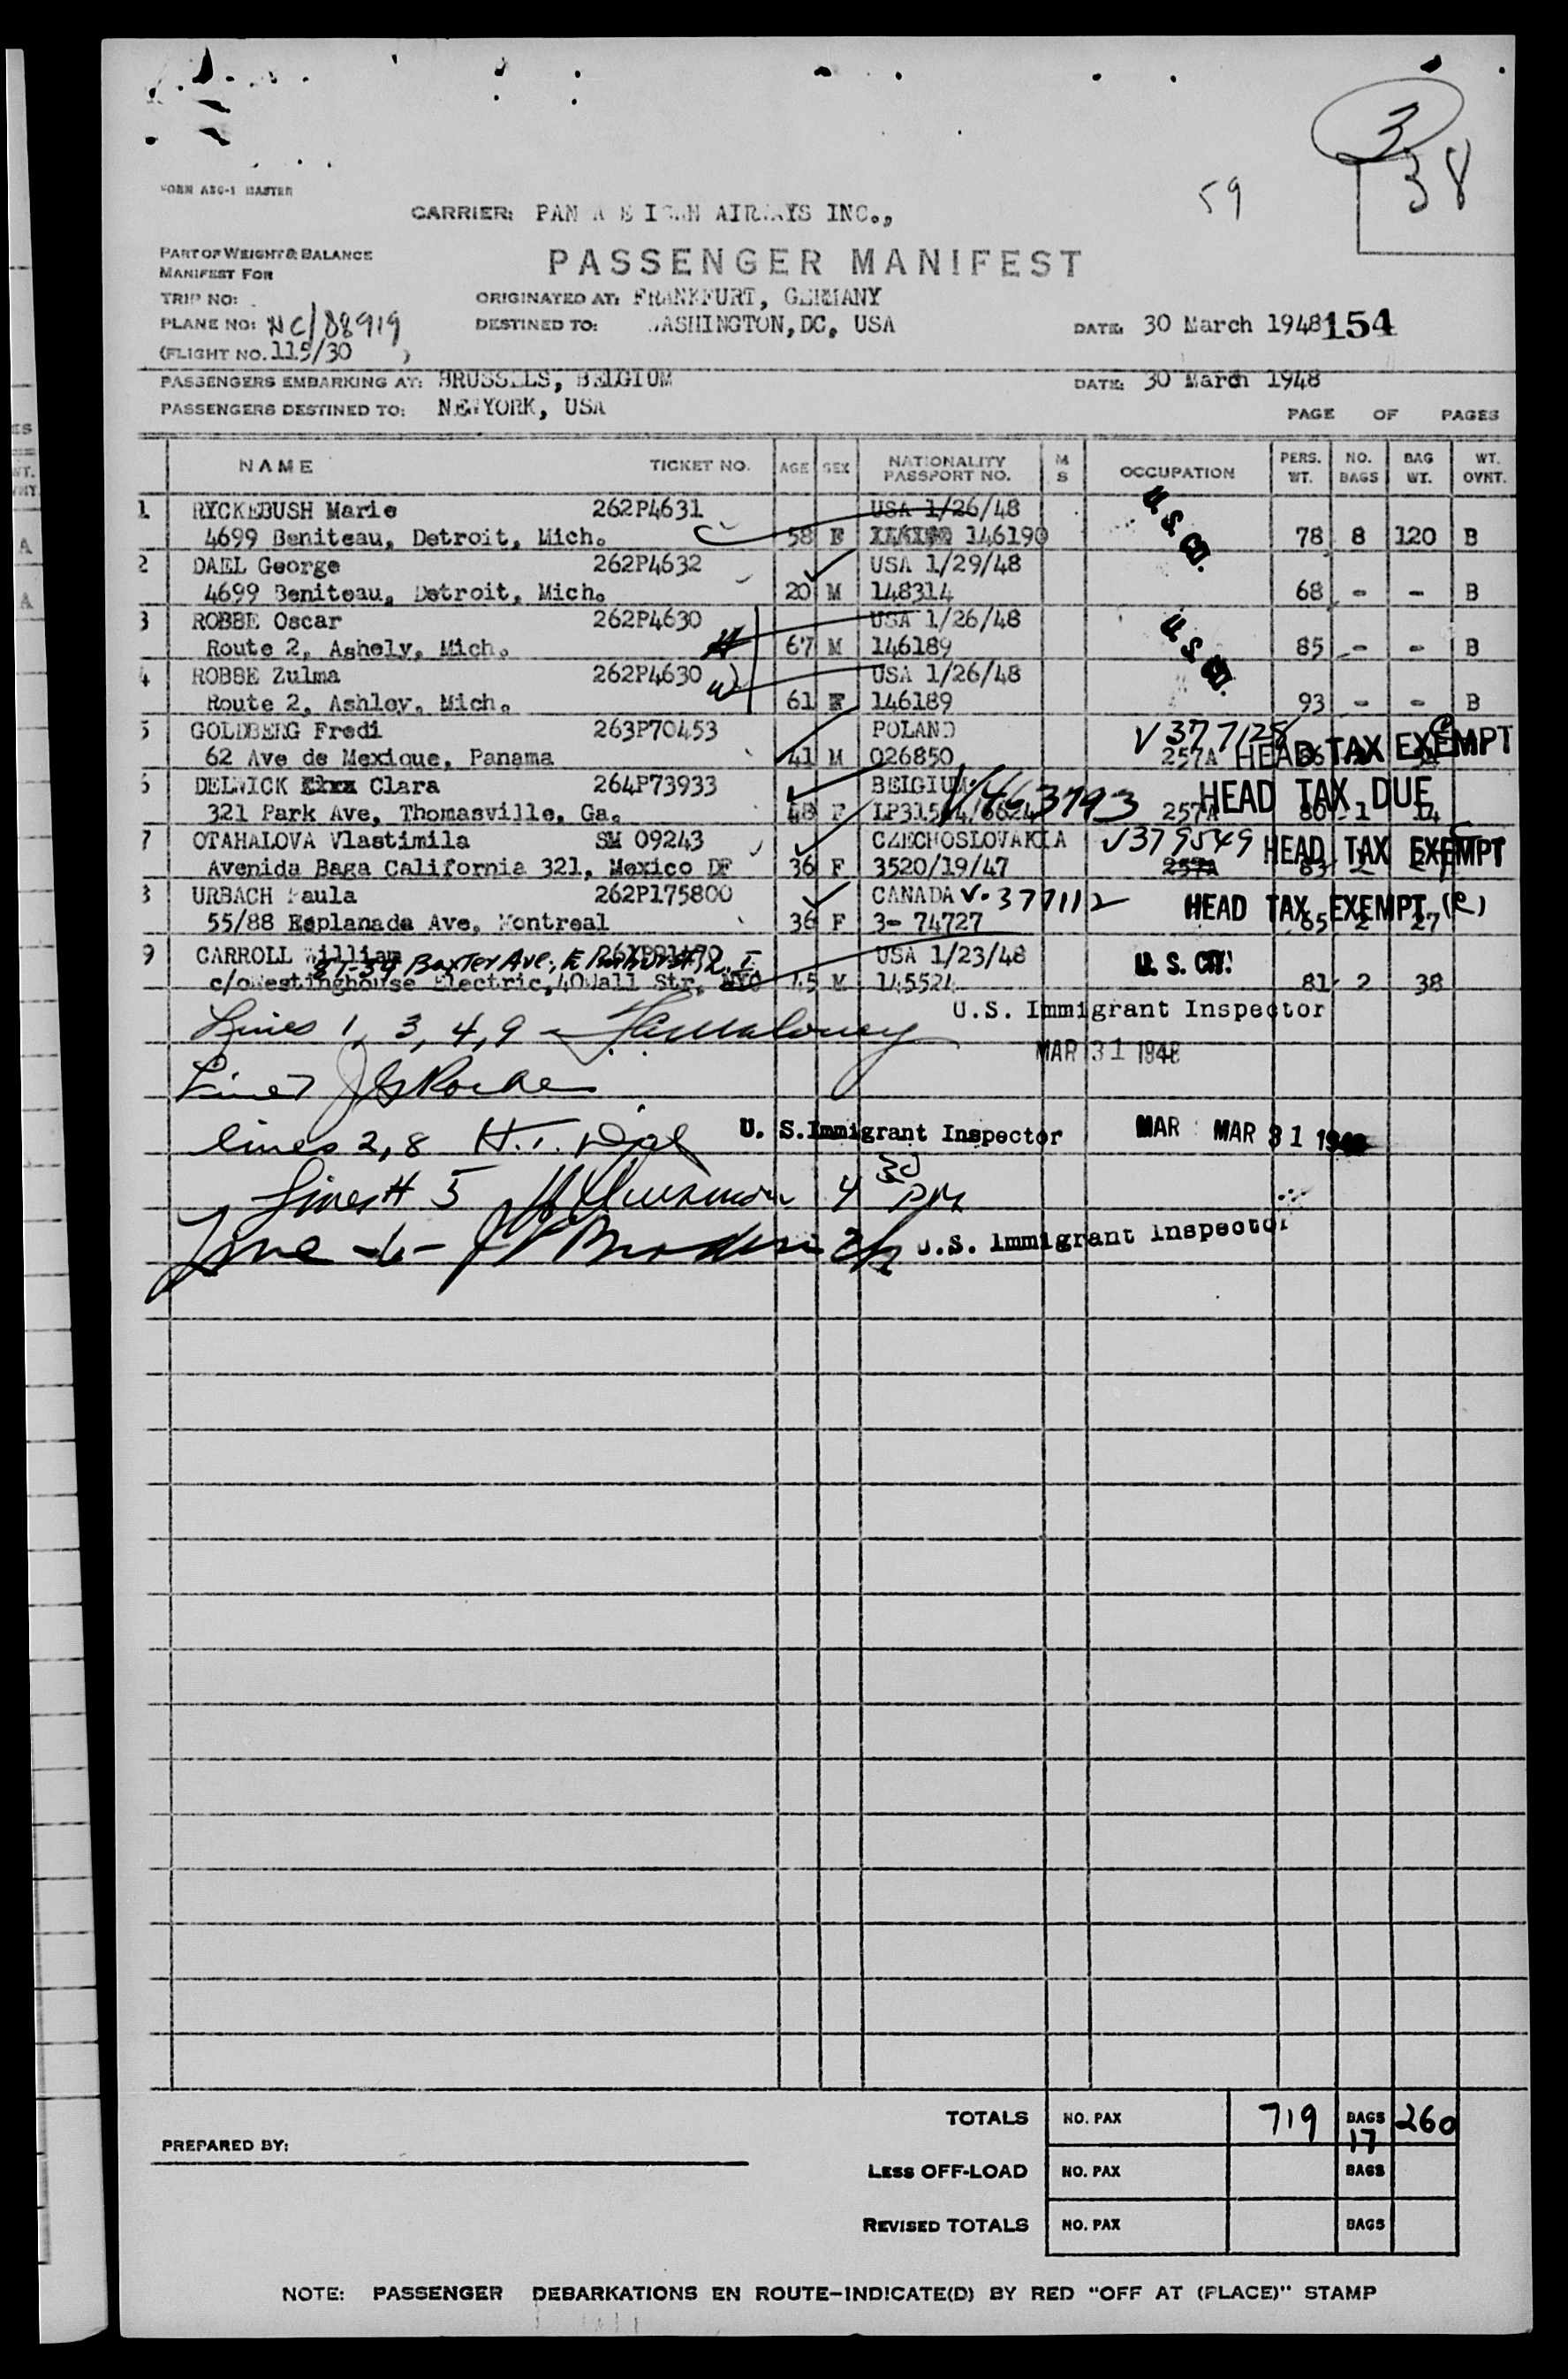 3
38
59
FORM ASC-1 MASTER
CARRIER: PAN A E ICAN AIRWAYS INC.,
PART OF WEIGHT & BALANCE
MANIFEST FOR
PASSENGER MANIFEST
TRIP NO:
ORIGINATED AT: FRANKFURT, GERMANY
PLANE NO: NC/88919
DESTINED TO: WASHINGTON,DC, USA
DATE: 30 March 1948 154
(FLIGHT NO. 115/30 )
PASSENGERS EMBARKING AT: BRUSSELS, BELGIUM DATE: 30 March 1948
PASSENGERS DESTINED TO: NEWYORK, USA
PAGE OF PAGES
NAME TICKET NO. AGE SEX NATIONALITY PASSPORT NO. M S OCCUPATION PERS. WT. NO. BAGS BAG WT. WT. OVNT.
1 RYCKEBUSH Marie 262P4631 USA 1/26/48
4699 Beniteau, Detroit, Mich. 58 F 146190 U.S. 78 8 120 B
2 DAEL George 262P4632 USA 1/29/48
4699 Beniteau, Detroit, Mich. 20 M 148314 68 - - B
3 ROBBE Oscar 262P4630 USA 1/26/48
Route 2, Ashely, Mich. 67 M 146189 U.S. 85 - - B
4 ROBBE Zulma 262P4630 USA 1/26/48
Route 2, Ashley, Mich. 61 F 146189 93 - - B
5 GOLDBERG Fredi 263P70453 POLAND V377128
62 Ave de Mexique, Panama 41 M 026850 257A HEAD TAX EXEMPT
6 DELWICK Clara 264P73933 BELGIUM V463793 HEAD TAX DUE
321 Park Ave, Thomasville, Ga. 48 F 257A 80 1 14
7 OTAHALOVA Vlastimila SM 09243 CZECHOSLOVAKIA V379549 HEAD TAX EXEMPT
Avenida Baga California 321, Mexico DF 36 F 3520/19/47 257A 83 2
8 URBACH Paula 262P175800 CANADA V-377112 HEAD TAX EXEMPT (R)
55/88 Esplanade Ave, Montreal 36 F 3- 74727 65 2 27
9 CARROLL William USA 1/23/48 U. S. CIT.
87-39 Baxter Ave., Elmhurst, L.I.
c/oWestinghouse Electric,40Wall Str, NYC 45 M 145524 81 2 38
Lines 1, 3, 4, 9 - Maloney U.S. Immigrant Inspector
MAR 31 1948
Line 7 Roche
lines 2, 8 U. S.Immigrant Inspector MAR MAR 31 1948
Line # 5 4 30 PM
Line -6- U.S. Immigrant Inspector
TOTALS NO. PAX 719 BAGS 17 260
PREPARED BY:
LESS OFF-LOAD NO. PAX BAGS
REVISED TOTALS NO. PAX BAGS
NOTE: PASSENGER DEBARKATIONS EN ROUTE-INDICATE(D) BY RED "OFF AT (PLACE)" STAMP